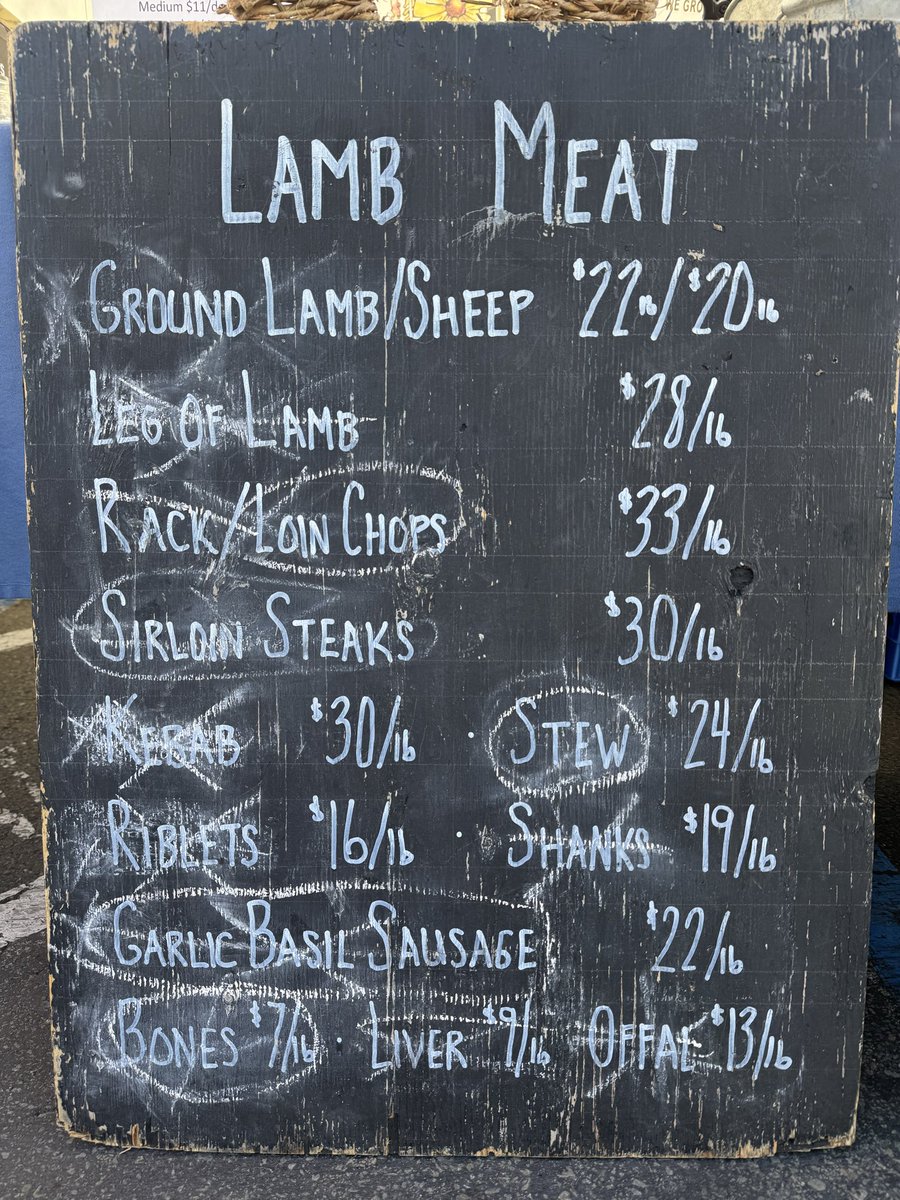 Medium $11/d
WE GRO
LAMB MEAT
GROUND LAMB/SHEEP $22lb/$20lb
LEG OF LAMB $28/lb
RACK/LOIN CHOPS $33/lb
SIRLOIN STEAKS $30/lb
KEBAB $30/lb · STEW $24/lb
RIBLETS $16/lb · SHANKS $19/lb
GARLIC BASIL SAUSAGE $22/lb
BONES $7/lb · LIVER $9/lb OFFAL $13/lb